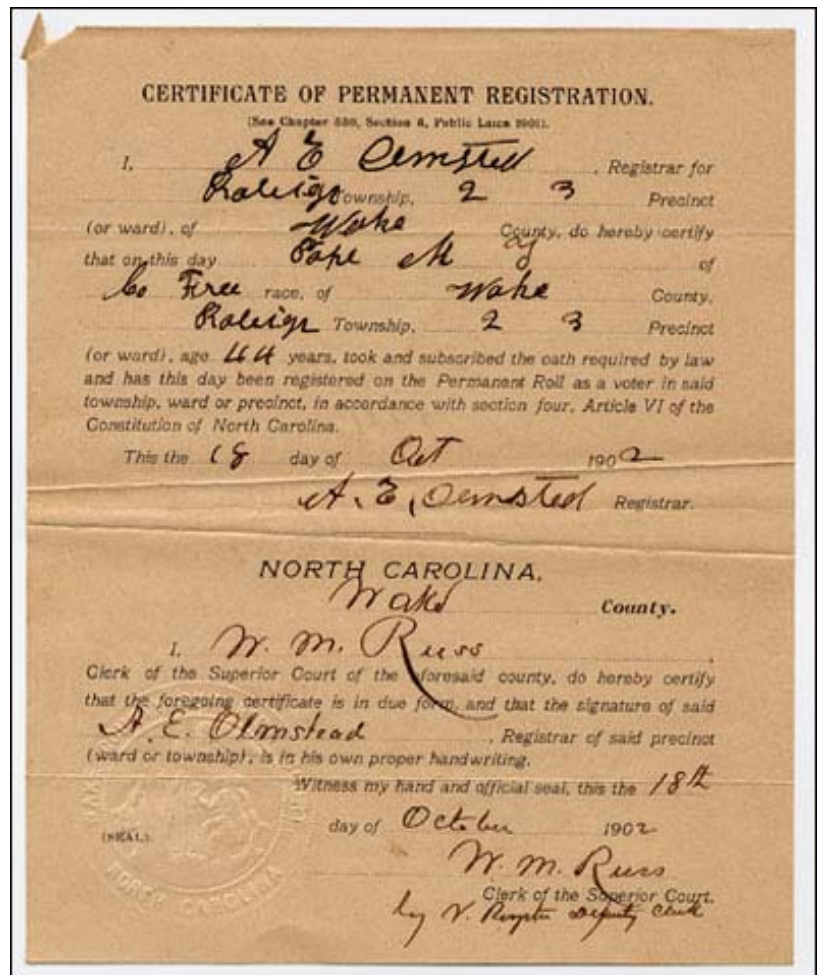 CERTIFICATE OF PERMANENT REGISTRATION.
(See Chapter 550, Section 6, Public Laws 1901).
I, A E Olmsted, Registrar for
Raleigh Township, 2 3 Precinct
(or ward), of Wake County, do hereby certify
that on this day Pope M of
Co Free race, of Wake County,
Raleigh Township, 2 3 Precinct
(or ward), age 44 years, took and subscribed the oath required by law
and has this day been registered on the Permanent Roll as a voter in said
township, ward or precinct, in accordance with section four, Article VI of the
Constitution of North Carolina.
This the 18 day of Oct 1902
A. E. Olmsted Registrar.
NORTH CAROLINA,
Wake County.
I, W. M. Russ,
Clerk of the Superior Court of the aforesaid county, do hereby certify
that the foregoing certificate is in due form, and that the signature of said
A. E. Olmstead, Registrar of said precinct
(ward or township), is in his own proper handwriting.
Witness my hand and official seal, this the 18th
day of October 1902
(SEAL).
NORTH CAROLINA
W. M. Russ
Clerk of the Superior Court.
by Deputy Clerk